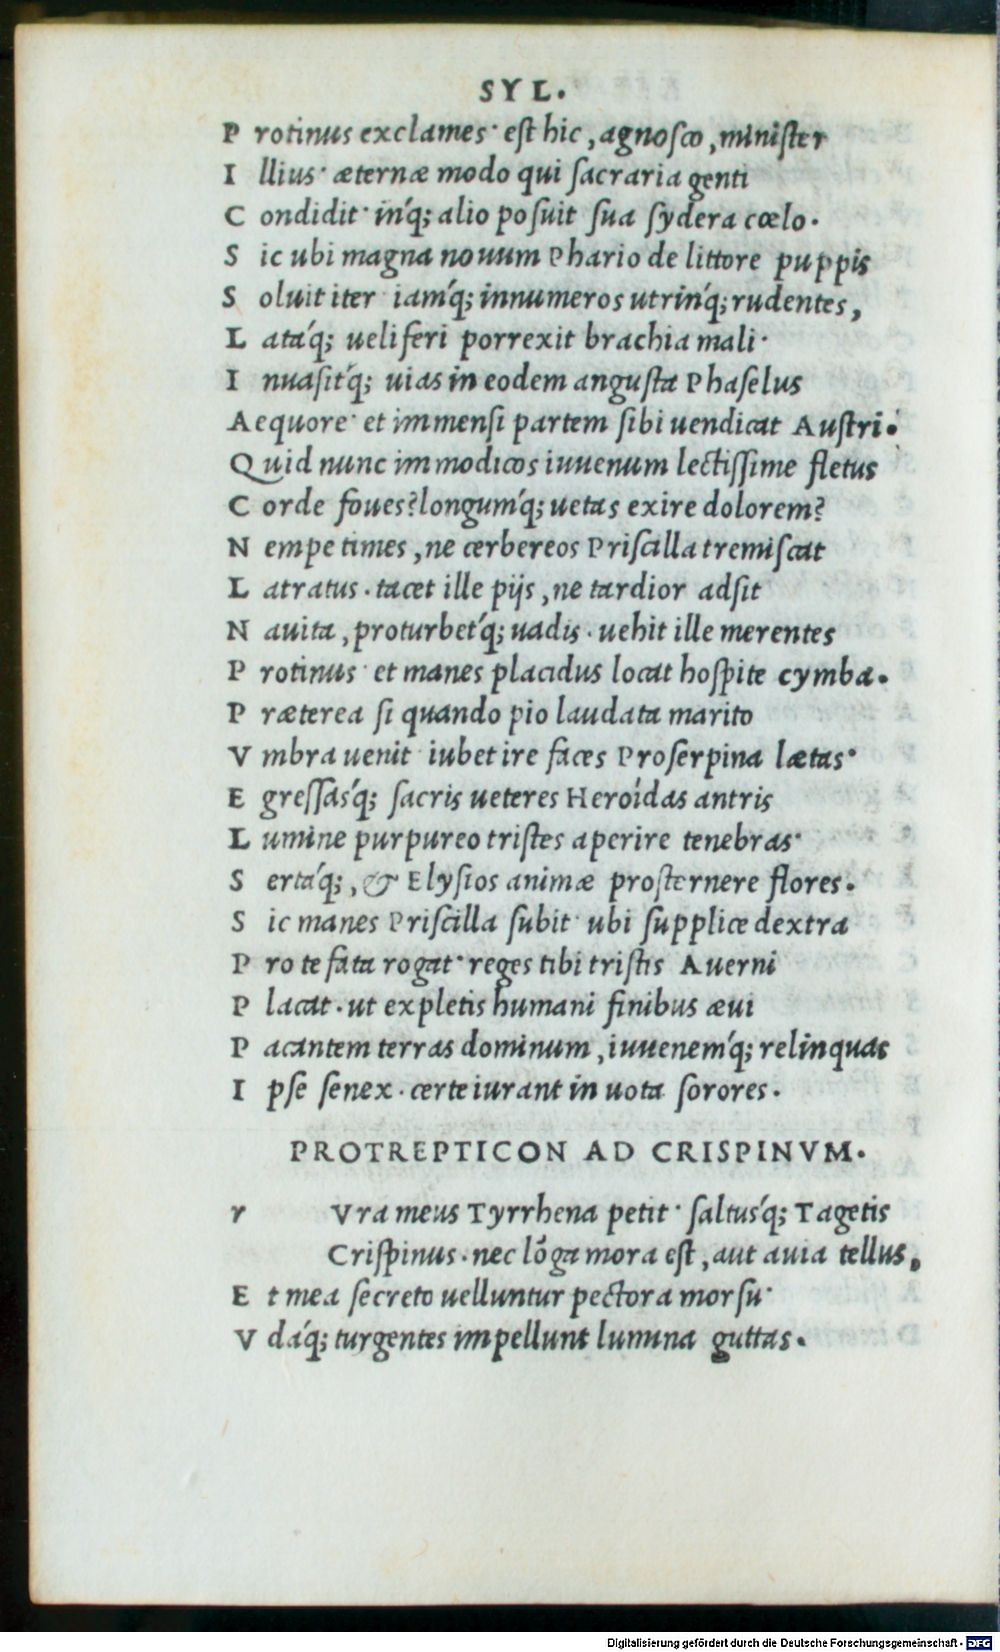 SYL.
P rotinus exclames· est hic, agnosco, minister
I llius· æternæ modo qui sacraria genti
C ondidit· inq́; alio posuit sua sydera cœlo.
S ic ubi magna nouum Phario de littore puppis
S oluit iter iamq́; innumeros utrinq́; rudentes,
L ataq́; ueliferi porrexit brachia mali·
I nuasitq́; uias in eodem angusta Phaselus
Aequore· et immensi partem sibi uendicat Austri.
Quid nunc immodicos iuuenum lectissime fletus
C orde foues? longumq́; uetas exire dolorem?
N empe times, ne cerbereos Priscilla tremiscat
L atratus. tacet ille pijs, ne tardior adsit
N auita, proturbetq́; uadis. uehit ille merentes
P rotinus· et manes placidus locat hospite cymba.
P ræterea si quando pio laudata marito
V mbra uenit· iubet ire faces Proserpina lætas·
E gressasq́; sacris ueteres Heroidas antris
L umine purpureo tristes aperire tenebras·
S ertaq́;, & Elysios animæ prosternere flores.
S ic manes Priscilla subit· ubi supplice dextra
P ro te fata rogat· reges tibi tristis Auerni
P lacat. ut expletis humani finibus æui
P acantem terras dominum, iuuenemq́; relinquas
I pse senex. certe iurant in uota sorores.
PROTREPTICON AD CRISPINVM.
r Vra meus Tyrrhena petit· saltusq́; Tagetis
Crispinus. nec lōga mora est, aut auia tellus,
E t mea secreto uelluntur pectora morsu·
V daq́; turgentes impellunt lumina guttas.
Digitalisierung gefördert durch die Deutsche Forschungsgemeinschaft - DFG